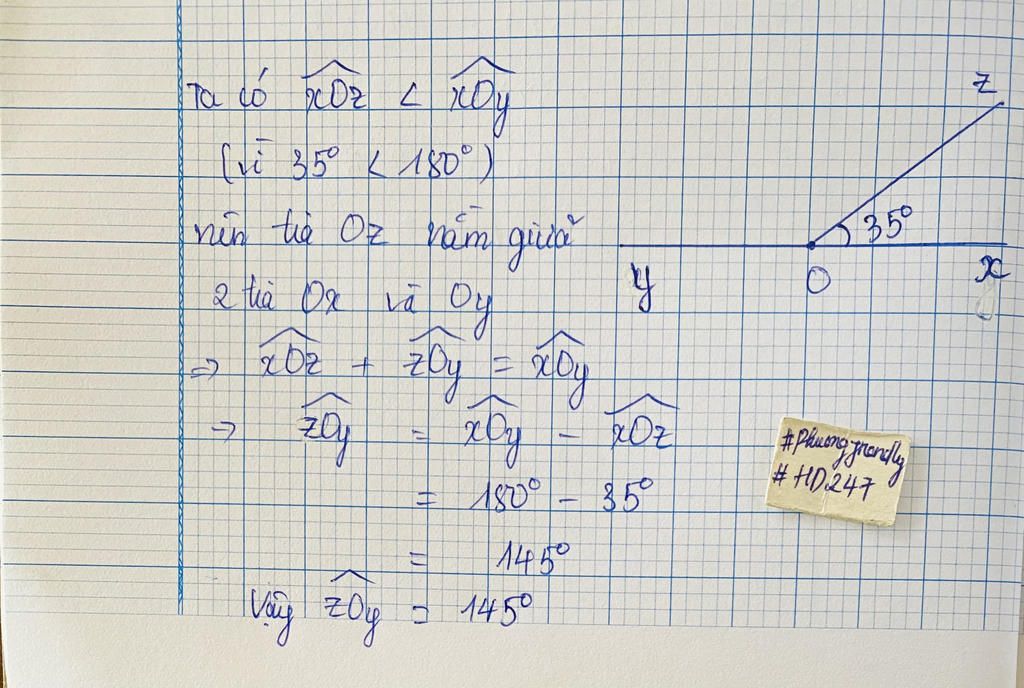 Ta có xOz < xOy
(vì 35° < 180°)
nên tia Oz nằm giữa
2 tia Ox và Oy
=> xOz + zOy = xOy
=> zOy = xOy - xOz
= 180° - 35°
= 145°
Vậy zOy = 145°
z
35°
y O x
#Phuongfriendly
#HD247